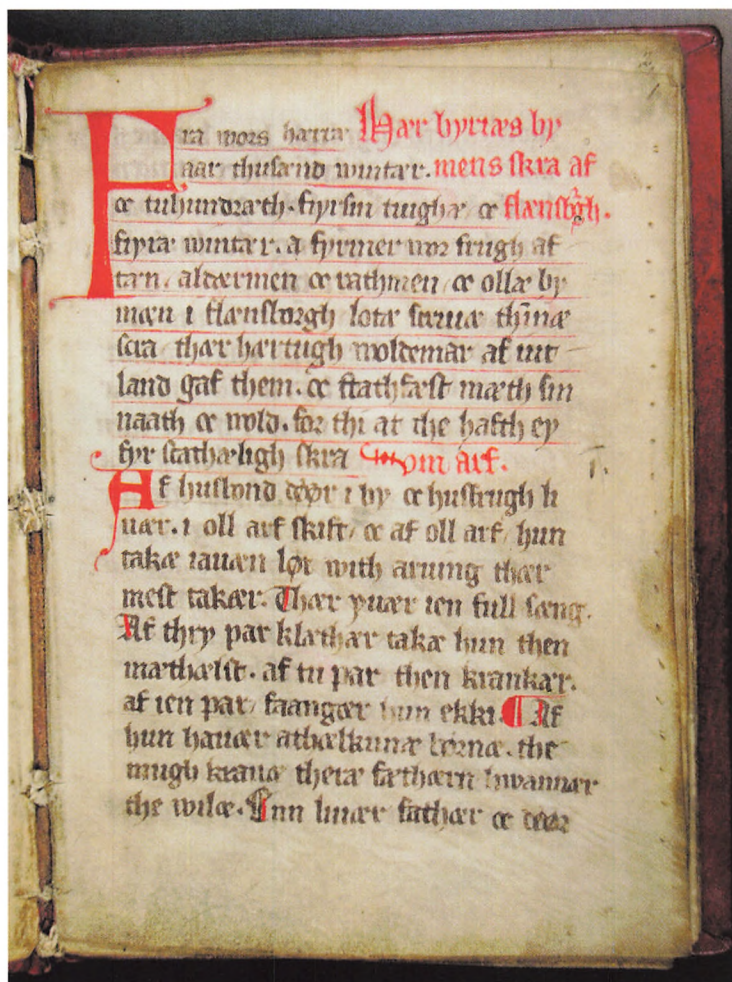 Fra wors hærræ Hær byriæs by
aar thusænd wintær. mens skra af
oc tuhundræth. fyrsin tiughæ oc flænsborgh.
fiyræ wintær. a fyrmer wor frugh af
tan. aldermen oc rathmen oc ollæ by
mæn i flænsborgh lotæ scriuæ thinnæ
scra thær hærtugh woldemar af iut
land gaf them. oc stathfæst mæth sin
naath oc wold. for thi at the hafth ey
fyr stathæligh skra Om arf.
Af husbond døør i by oc husfrugh li
uær. i oll arf skift, oc af oll arf, hun
takæ iauæn lot with aruing thær
mest takær. Thær yuær ien full sæng.
Af thry par klæthær takæ hun then
mæthælst. af tu par then krankær.
af ien par, faangær hun ekki. Af
hun hauær athælkunæ børnæ. the
mugh krauæ theræ fæthærn hwannær
the wilæ. Ænn liuær fathær oc døør